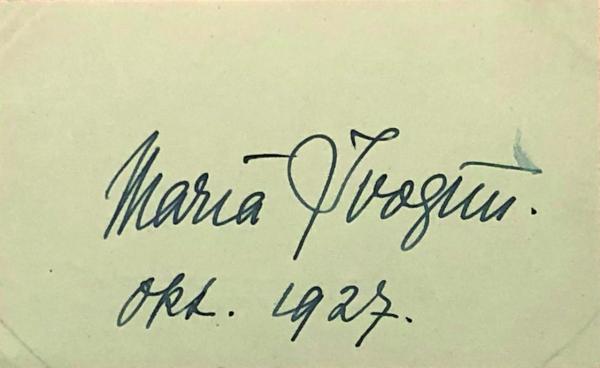 Maria Ivogün.
Okt. 1927.